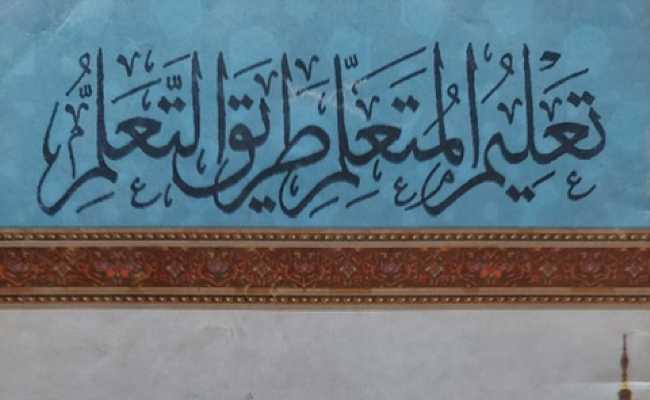 تَعْلِيْمُ الْمُتَعَلِّمِ طَرِيْقَ التَّعَلُّمِ